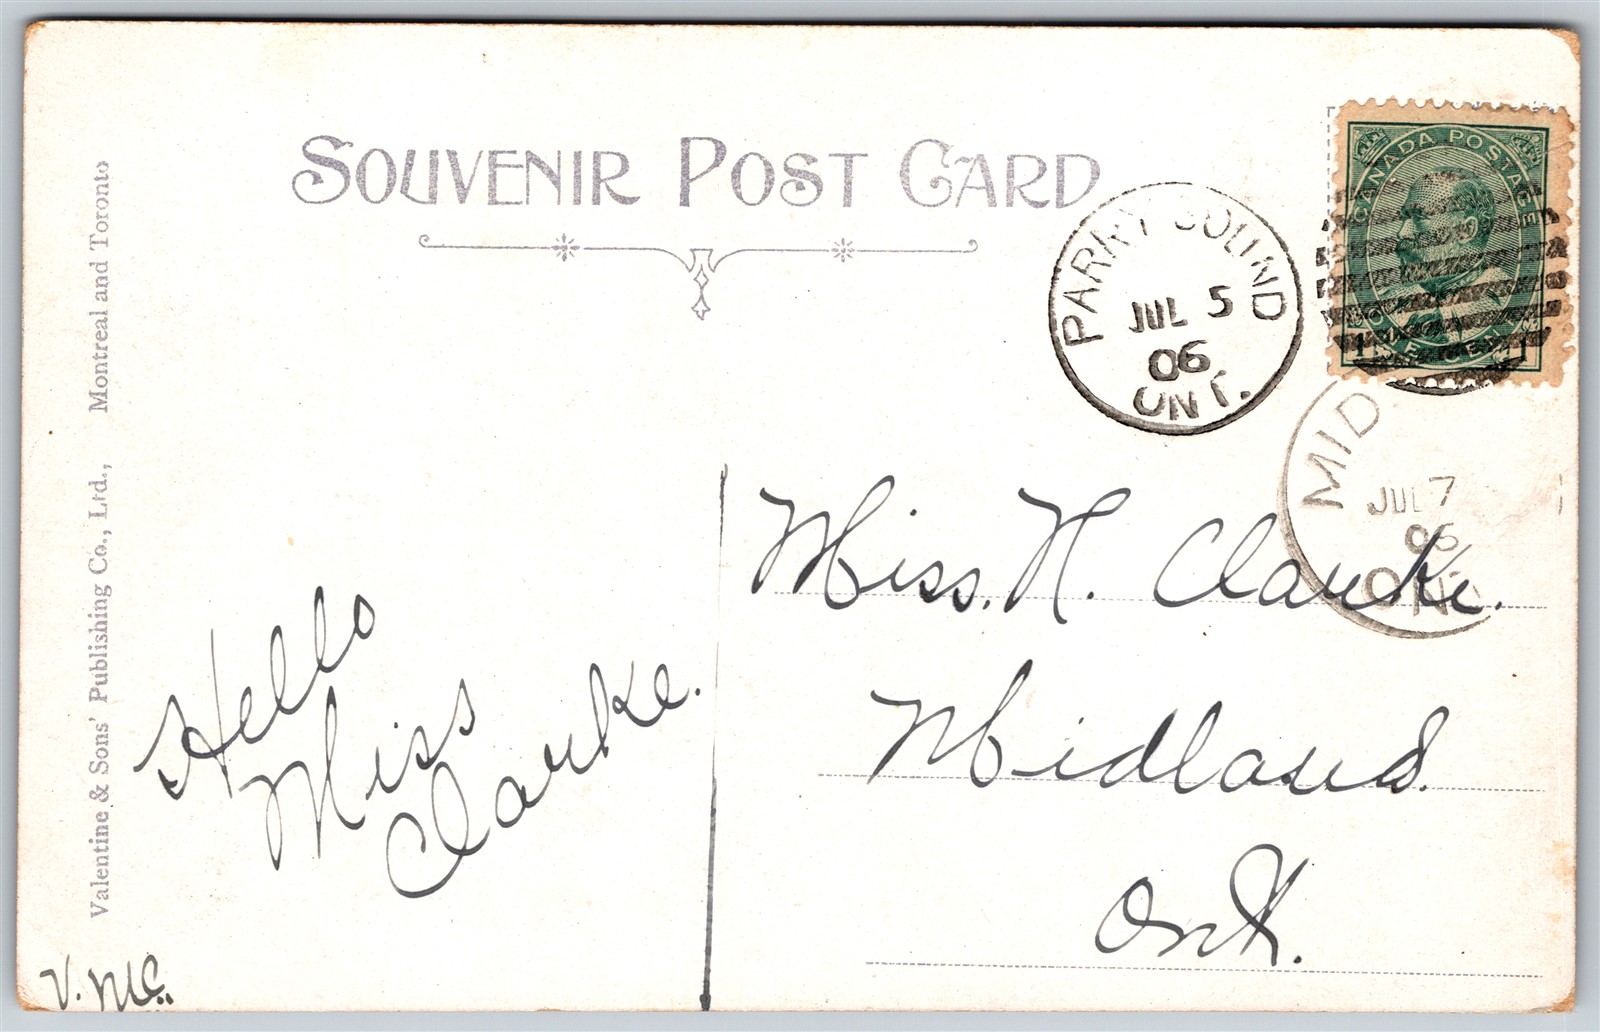 SOUVENIR POST CARD
CANADA POSTAGE
1 1
PARRY SOUND
JUL 5
06
ONT.
MID
JUL 7
06
ONT
Miss. N. Clarke.
Midland.
Ont.
Hello
Miss
Clarke.
V. Mc.
Valentine & Sons' Publishing Co., Ltd., Montreal and Toronto